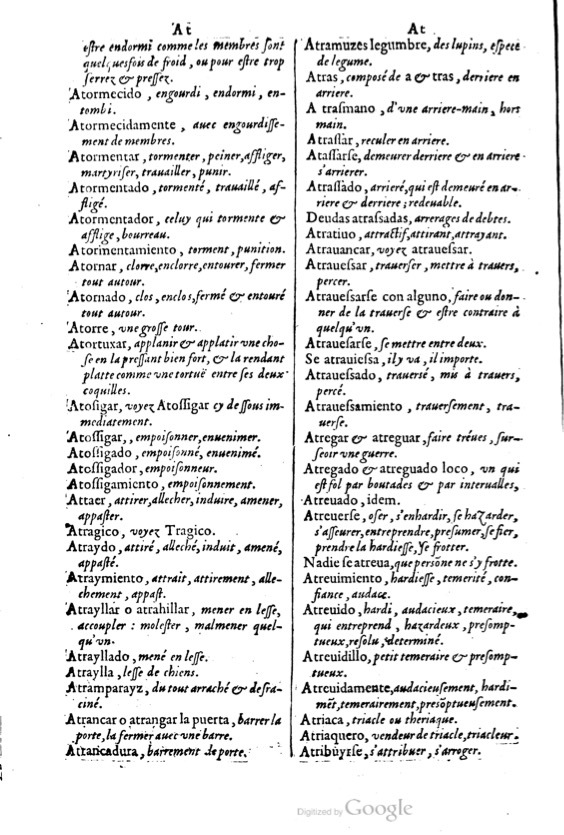 At
eſtre endormi comme les membres ſont
quelquesfois de froid, ou pour eſtre trop
ſerrez & preſſez.
Atormecido, engourdi, endormi, en-
tombi.
Atormecidamente, auec engourdiſſe-
ment de membres.
Atormentar, tormenter, peiner, affliger,
martyriſer, trauailler, punir.
Atormentado, tormenté, trauaillé, af-
fligé.
Atormentador, celuy qui tormente &
afflige, bourreau.
Atormentamiento, torment, punition.
Atornar, clorre, enclorre, entourer, fermer
tout autour.
Atornado, clos, enclos, fermé & entouré
tout autour.
Atorre, vne groſſe tour.
Atortuxar, applanir & applatir vne cho-
ſe en la preſſant bien fort, & la rendant
platte comme vne tortuë entre ſes deux
coquilles.
Atoſigar, voyez Atoſſigar cy deſſous im-
mediatement.
Atoſſigar, empoiſonner, enuenimer.
Atoſſigado, empoiſonné, enuenimé.
Atoſſigador, empoiſonneur.
Atoſſigamiento, empoiſonnement.
Attaer, attirer, allecher, induire, amener,
appaſter.
Atragico, voyez Tragico.
Atraydo, attiré, alleché, induit, amené,
appaſté.
Atraymiento, attrait, attirement, alle-
chement, appaſt.
Atrayllar o atrahillar, mener en leſſe,
accoupler : moleſter, malmener quel-
qu'vn.
Atrayllado, mené en leſſe.
Atraylla, leſſe de chiens.
Atramparayz, du tout arraché & deſra-
ciné.
Atrancar o atrangar la puerta, barrer la
porte, la fermer auec vne barre.
Atrancadura, barrement de porte.
At
Atramuzes legumbre, des lupins, eſpece
de legume.
Atras, compoſé de a & tras, derriere en
arriere.
A traſmano, d'vne arriere-main, hors
main.
Atraſſar, reculer en arriere.
Ataſſarſe, demeurer derriere & en arriere
s'arrierer.
Atraſſado, arrieré, qui eſt demeuré en ar-
riere & derriere ; redeuable.
Deudas atraſſadas, arrerages de debtes.
Atratiuo, attractif, attirant, attrayant.
Atrauancar, voyez atraueſſar.
Atraueſſar, trauerſer, mettre à trauers,
percer.
Atraueſſarſe con alguno, faire ou don-
ner de la trauerſe & eſtre contraire à
quelqu'vn.
Atraueſarſe, ſe mettre entre deux.
Se atrauieſſa, il y va, il importe.
Atraueſſado, trauersé, mis à trauers,
percé.
Atraueſſamiento, trauerſement, tra-
uerſe.
Atregar & atreguar, faire tréues, ſur-
ſeoir vne guerre.
Atregado & atreguado loco, vn qui
eſt fol par boutades & par interualles,
Atreuado, idem.
Atreuerſe, oſer, s'enhardir, ſe hazarder,
s'aſſeurer, entreprendre, preſumer, ſe fier,
prendre la hardieſſe, ſe frotter.
Nadie ſe atreua, que perſõne ne s'y frotte.
Atreuimiento, hardieſſe, temerité, con-
fiance, audace.
Atreuido, hardi, audacieux, temeraire,
qui entreprend, hazardeux, preſomp-
tueux, reſolu, determiné.
Atreuidillo, petit temeraire & preſomp-
tueux.
Atreuidamente, audacieuſement, hardi-
mẽt, temerairement, preſõptueuſement.
Atriaca, triacle ou theriaque.
Atriaquero, vendeur de triacle, triacleur.
Atribuyrſe, s'attribuer, s'arroger.
Digitized by Google